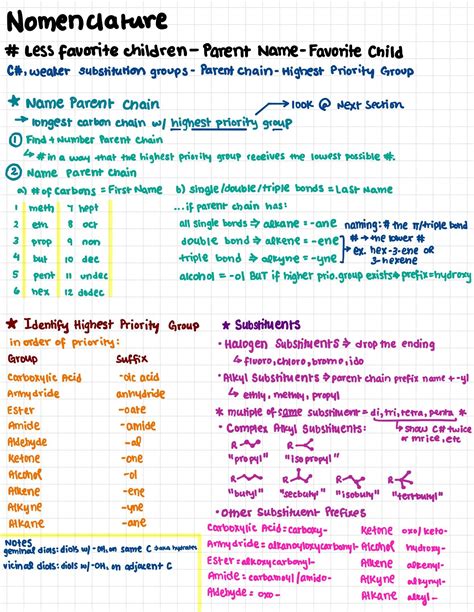 Nomenclature
# Less favorite children - Parent Name - Favorite Child
C#, weaker substitution groups - Parent Chain - Highest Priority Group
★ Name Parent Chain
→ look @ Next Section
→ longest carbon chain w/ highest priority group
① Find + Number Parent Chain
↳ # in a way that the highest priority group receives the lowest possible #.
② Name Parent Chain
a) # of Carbons = First Name
1 meth 7 hept
2 eth 8 oct
3 prop 9 non
4 but 10 dec
5 pent 11 undec
6 hex 12 dodec
b) single/double/triple bonds = Last Name
...if parent chain has:
all single bonds ⇒ alkane = -ane
double bond ⇒ alkene = -ene
triple bond ⇒ alkyne = -yne
naming: # the π/triple bond
# → the lower #
↳ ex. hex-3-ene or
3-hexene
alcohol = -ol BUT if higher prio. group exists ⇒ prefix = hydroxy
★ Identify Highest Priority Group
in order of priority:
Group Suffix
Carboxylic Acid -oic acid
Anhydride anhydride
Ester -oate
Amide -amide
Aldehyde -al
Ketone -one
Alcohol -ol
Alkene -ene
Alkyne -yne
Alkane -ane
NOTES
geminal diols: diols w/ -OH, on same C → aka hydrates
vicinal diols: diols w/ -OH, on adjacent C
★ Substituents
• Halogen Substituents ⇒ drop the ending
↳ fluoro, chloro, bromo, ido
• Alkyl Substituents ⇒ parent chain prefix name + -yl
↳ ethly, methly, propyl
* multiple of same substituent = di, tri, tetra, penta *
↳ show C# twice
or thrice, etc
• Complex Alkyl Substituents:
R R
"propyl" "isopropyl"
R R R R
"butyl" "secbutyl" "isobutyl" "tertbutyl"
• Other Substituent Prefixes
Carboxylic Acid = carboxy- Ketone oxo/keto-
Anhydride = alkanoyloxycarbonyl- Alcohol hydroxy-
Ester = alkoxycarbonyl- Alkene alkenyl-
Amide = carbamoyl/amido- Alkyne alkynyl-
Aldehyde = oxo- Alkane alkyl-